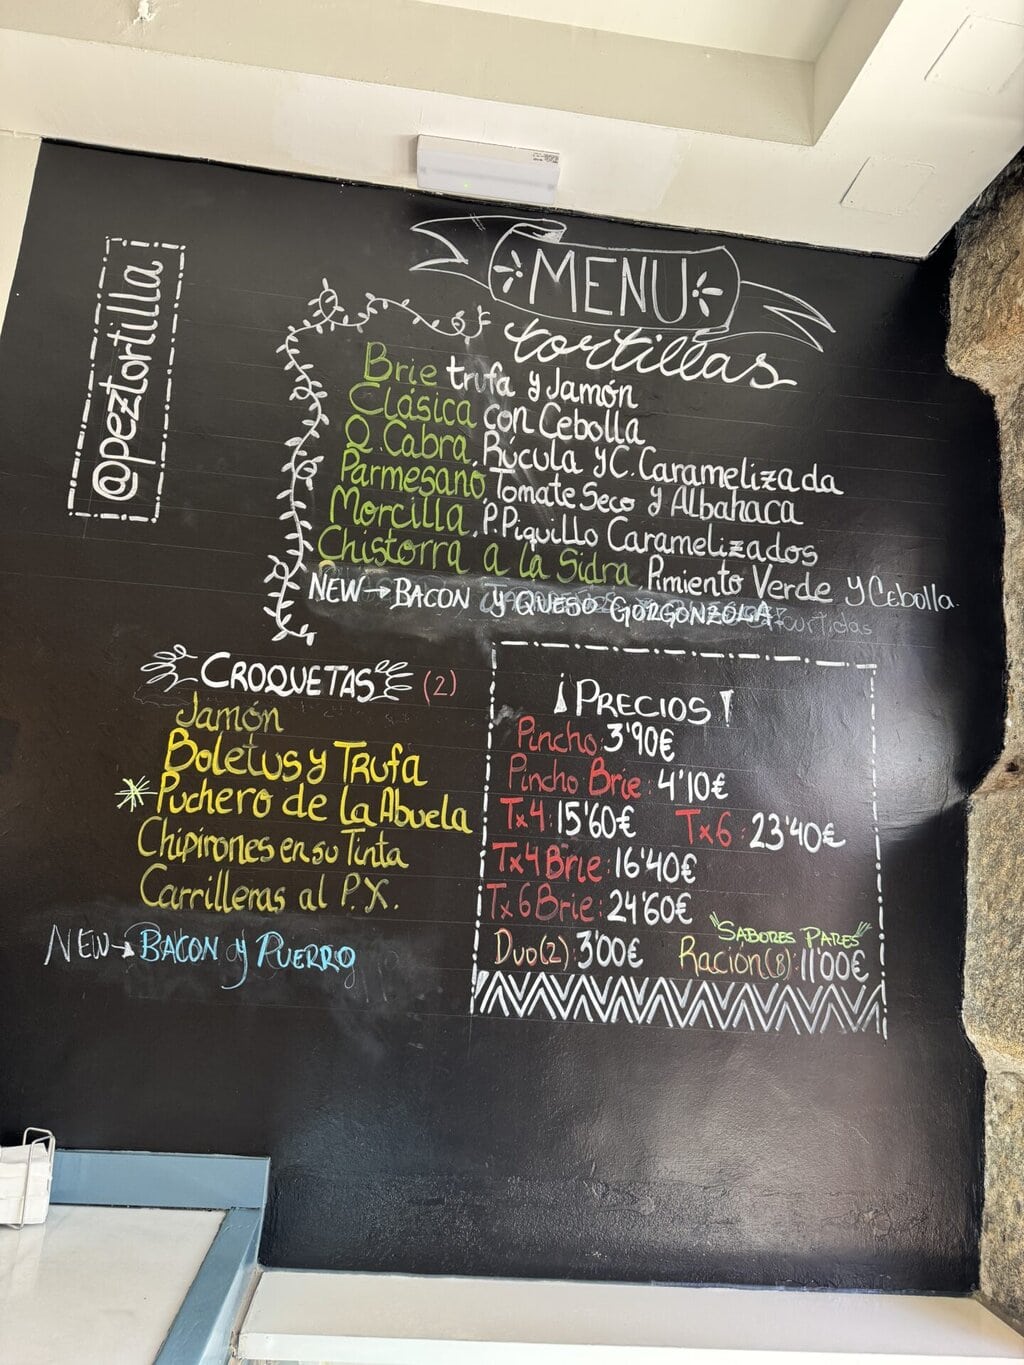 MENU
tortillas
@peztortilla
Brie trufa y Jamón
Clásica con Cebolla
Q. Cabra, Rúcula y C. Caramelizada
Parmesano, Tomate Seco y Albahaca
Morcilla, P. Piquillo Caramelizados
Chistorra a la Sidra, Pimiento Verde y Cebolla.
NEW→BACON y QUESO GORGONZOLA
CROQUETAS (2)
Jamón
Boletus y Trufa
Puchero de la Abuela
Chipirones en su Tinta
Carrilleras al P.X.
NEW→BACON y PUERRO
¡PRECIOS!
Pincho: 3'90€
Pincho Brie: 4'10€
Tx4: 15'60€ Tx6: 23'40€
Tx4 Brie: 16'40€
Tx6 Brie: 24'60€
"SABORES PARES"
Duo(2) 3'00€ Ración(8): 11'00€